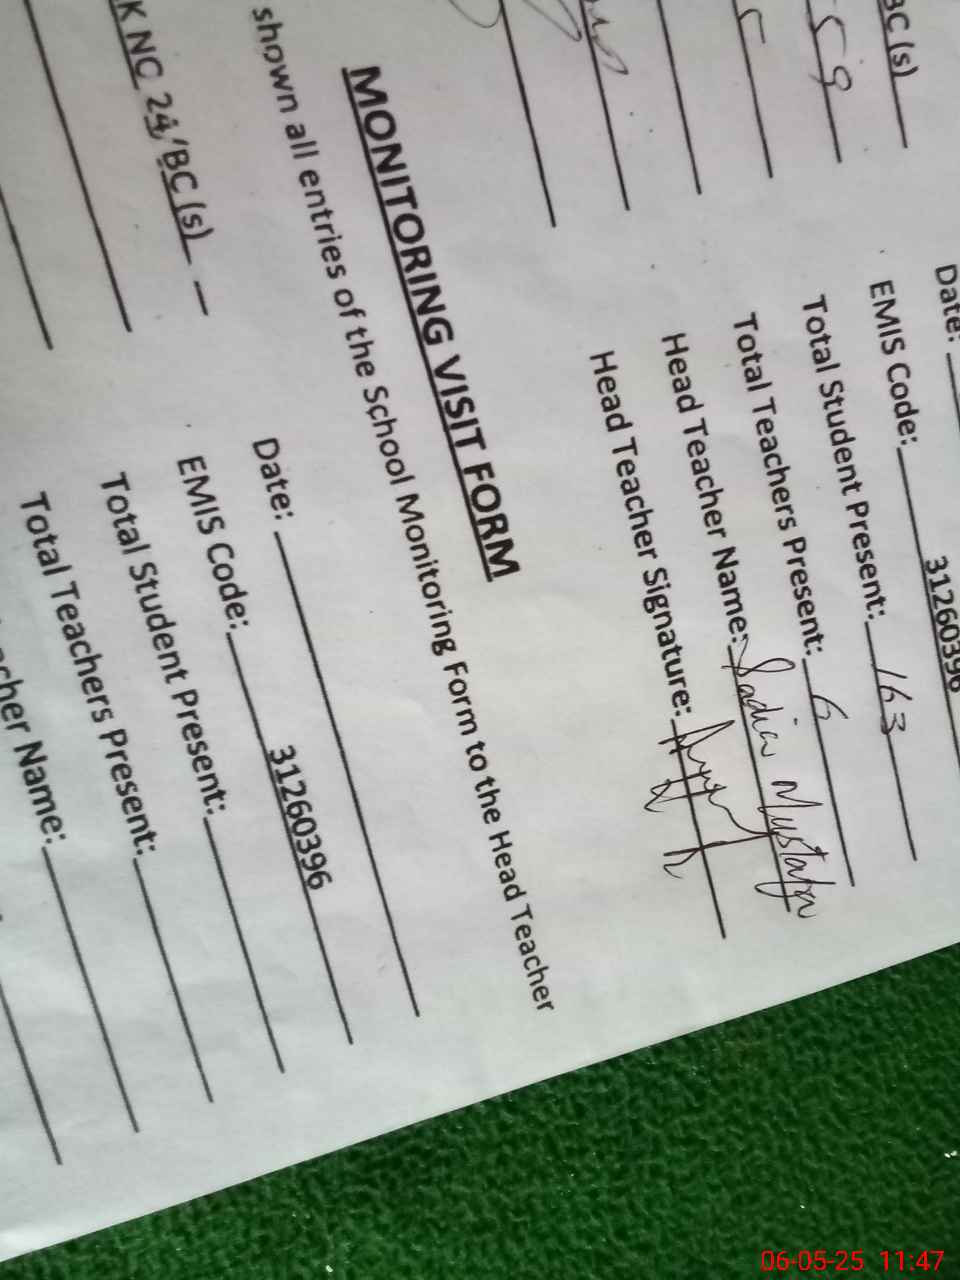 BC (s)
Date:
EMIS Code: 31260396
59 Total Student Present: 163
Total Teachers Present: 6
Head Teacher Name: Sadia Mustafa
Head Teacher Signature:
MONITORING VISIT FORM
shown all entries of the School Monitoring Form to the Head Teacher
K NC 24/BC (s) Date:
EMIS Code: 31260396
Total Student Present:
Total Teachers Present:
cher Name:
06-05-25 11:47